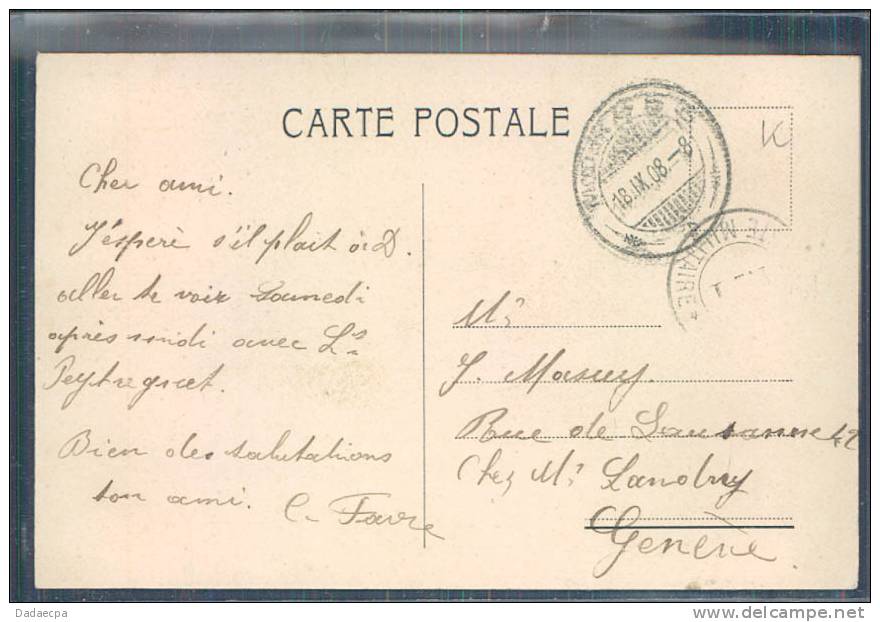 CARTE POSTALE
K
18.IX.08.-8
TE MILITAIRE *
Cher ami.
J'éspère s'il plait à D.
aller te voir Samedi
après midi avec Ls
Peytregnet.
Bien des salutations
ton ami. C. Favre
Mr
J. Masuy.
Rue de Lausanne 42
Chez Mr Landry
Genève
Dadaecpa
www.delcampe.net